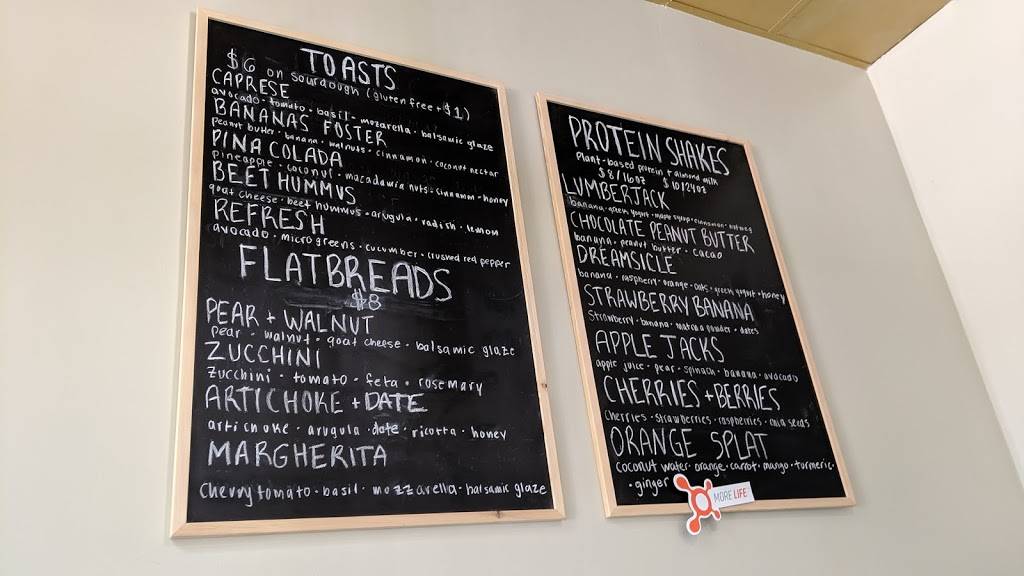 TOASTS
$6 on sourdough (gluten free + $1)
CAPRESE
avocado · tomato · basil · mozarella · balsamic glaze
BANANAS FOSTER
peanut butter · banana · walnuts · cinnamon · coconut nectar
PINA COLADA
pineapple · coconut · macadamia nuts · cinnamon · honey
BEET HUMMUS
goat cheese · beet hummus · arugula · radish · lemon
REFRESH
avocado · micro greens · cucumber · crushed red pepper
FLATBREADS
$8
PEAR + WALNUT
pear · walnut · goat cheese · balsamic glaze
ZUCCHINI
zucchini · tomato · feta · rosemary
ARTICHOKE + DATE
artichoke · arugula · date · ricotta · honey
MARGHERITA
Cherry tomato · basil · mozzarella · balsamic glaze
PROTEIN SHAKES
Plant-based protein + almond milk
$8/16oz $10/24oz
LUMBERJACK
banana · greek yogurt · maple syrup · cinnamon · nutmeg
CHOCOLATE PEANUT BUTTER
banana · peanut butter · cacao
DREAMSICLE
banana · raspberry · orange · oats · greek yogurt · honey
STRAWBERRY BANANA
Strawberry · banana · powder · dates
APPLE JACKS
apple juice · pear · spinach · banana · avocado
CHERRIES + BERRIES
Cherries · strawberries · raspberries · chia seeds
ORANGE SPLAT
Coconut water · orange · carrot · mango · turmeric ·
· ginger
MORE LIFE